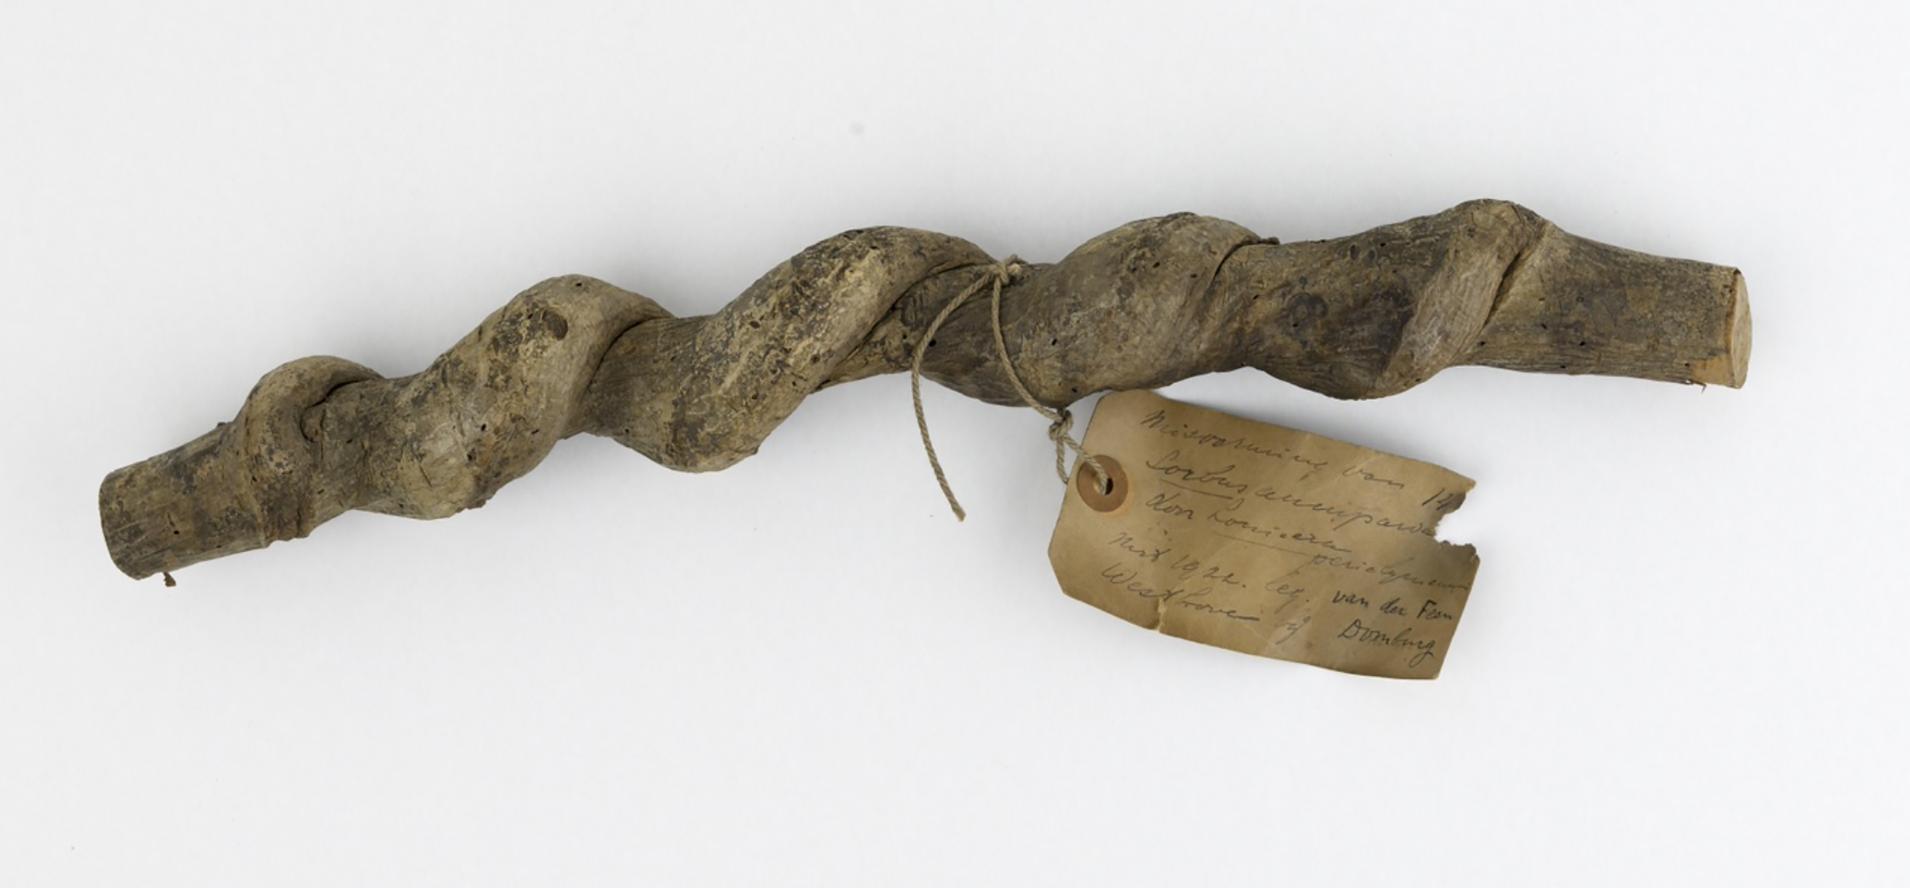 Misvorming van 14
Sorbus aucuparia
door Lonicera
periclymenum
1922. leg. van der Feen
Westhove bij Domburg